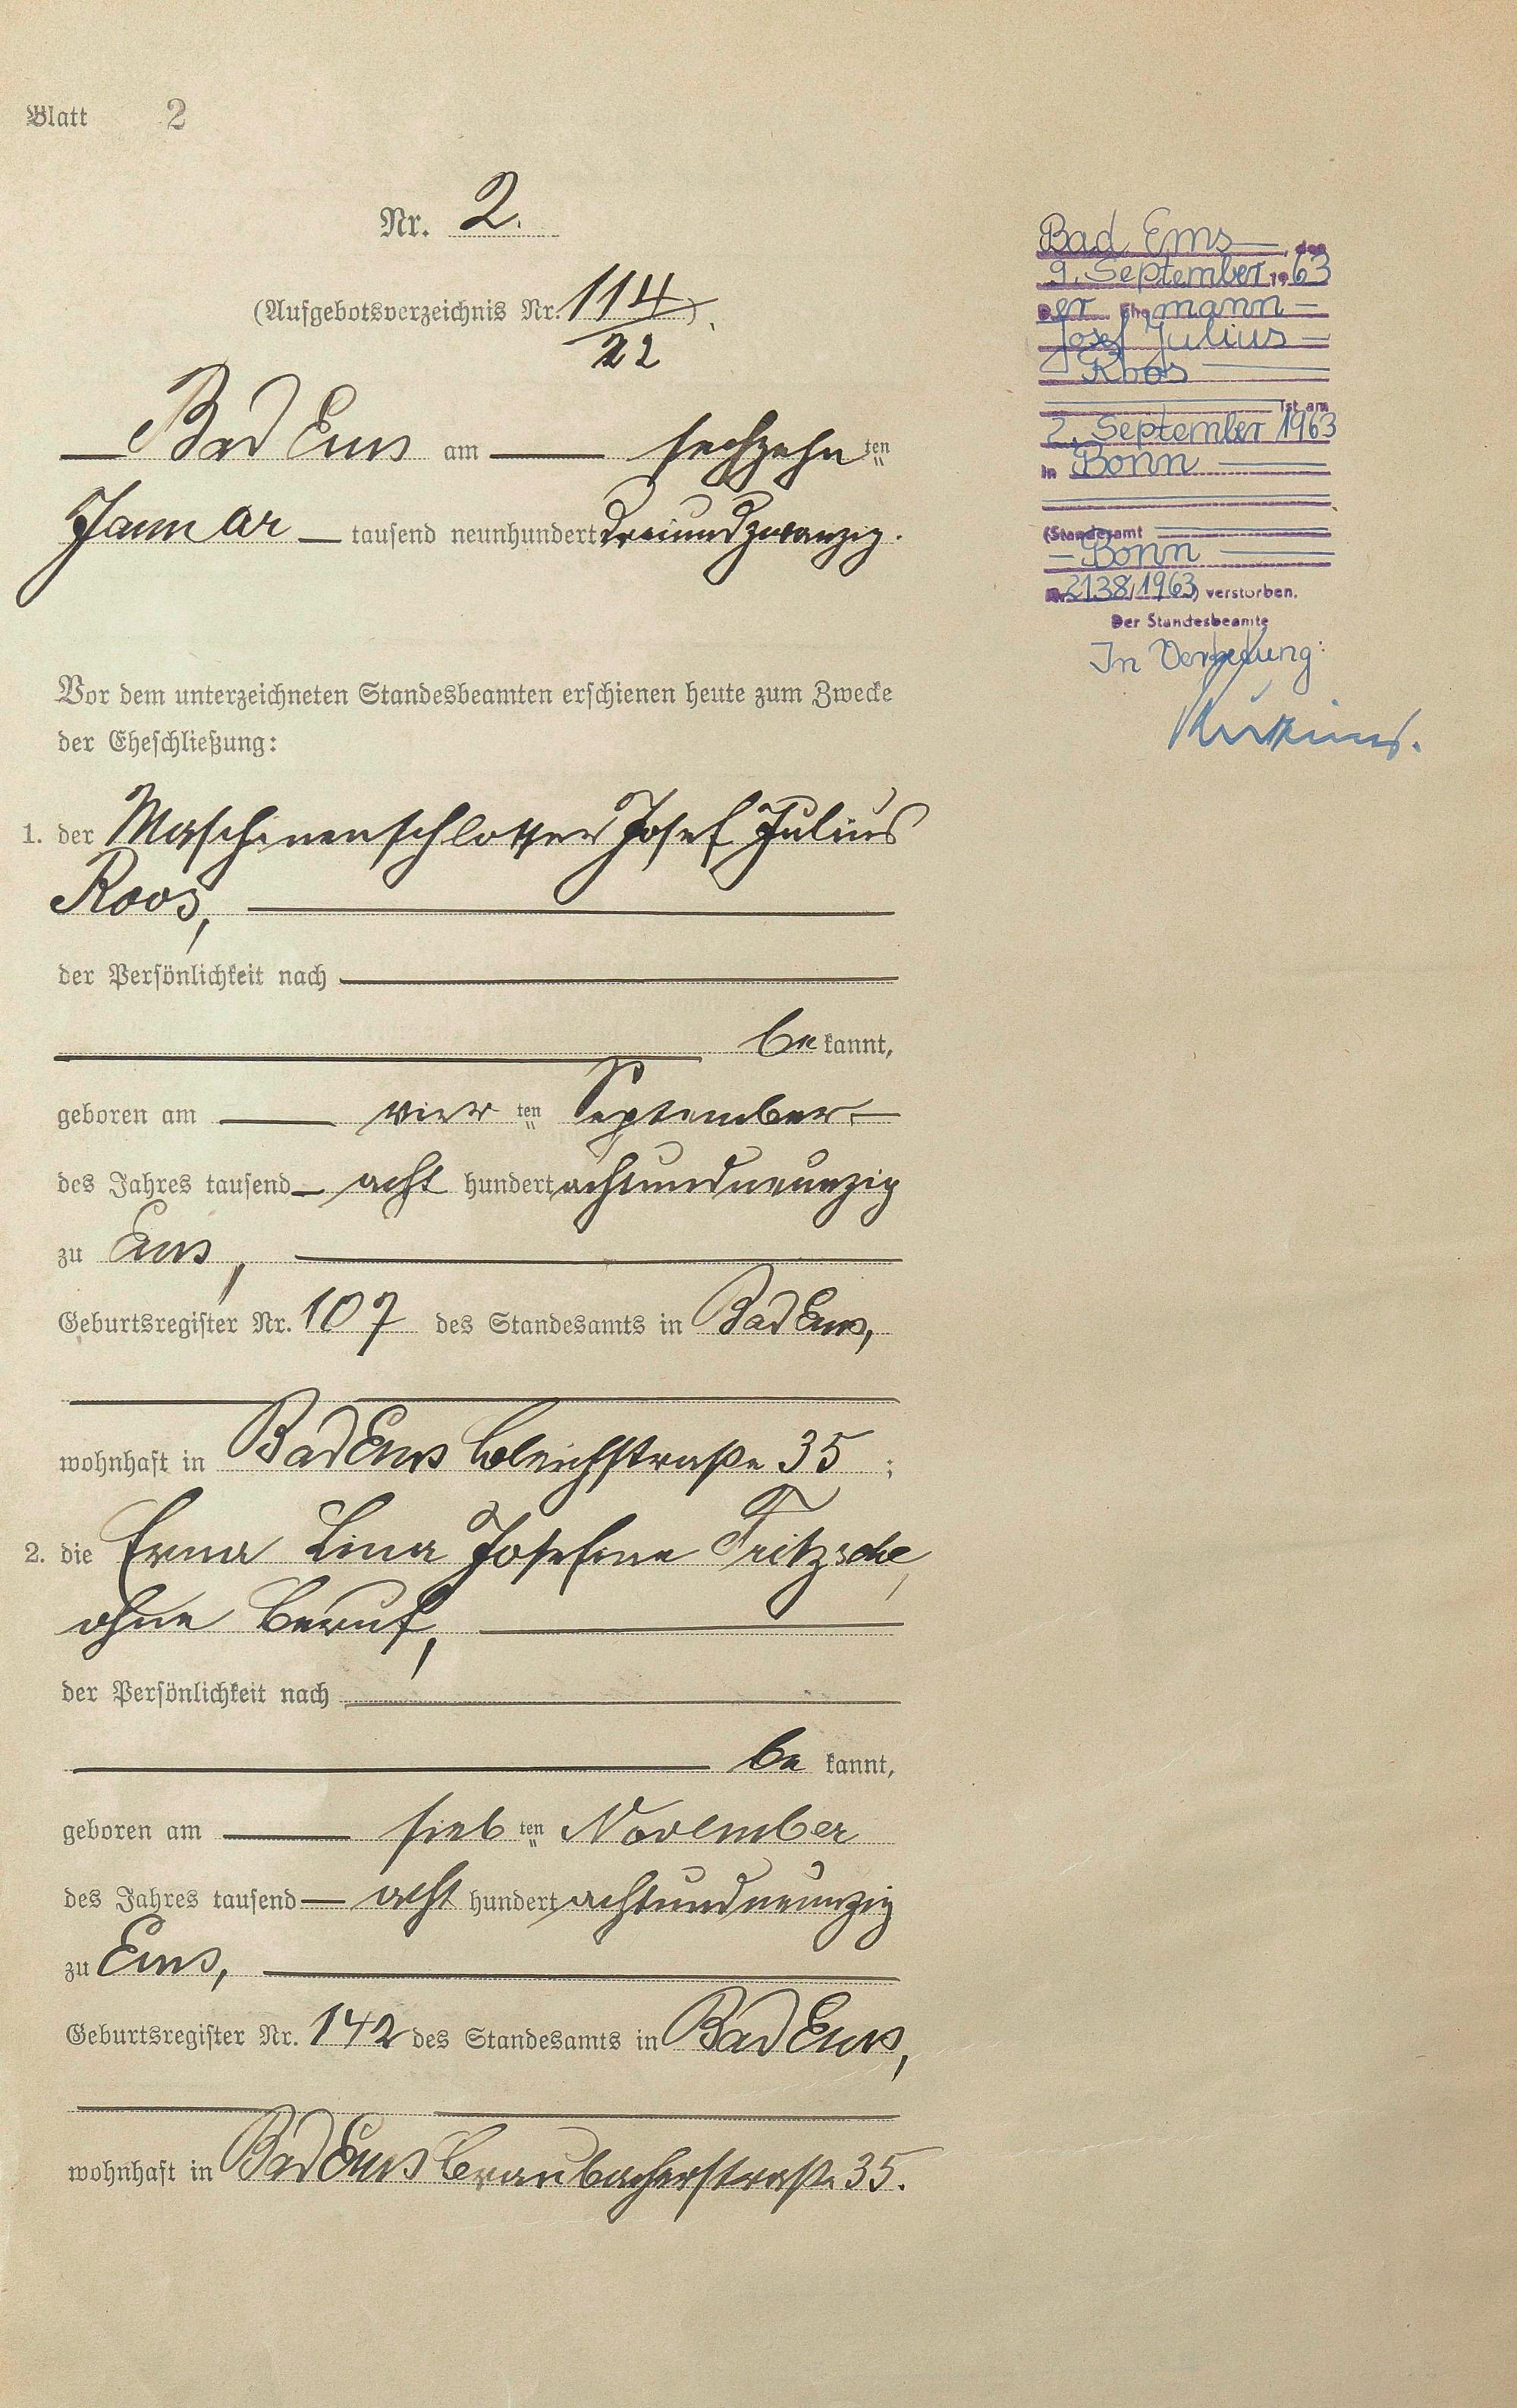 Blatt 2
Nr. 2.
(Aufgebotsverzeichnis Nr. 114/22).
Bad Ems am sechzehnten
Januar tausend neunhundert dreiundzwanzig.
Vor dem unterzeichneten Standesbeamten erschienen heute zum Zwecke
der Eheschließung:
1. der Maschinenschlosser Josef Julius
Roos,
der Persönlichkeit nach
bekannt,
geboren am vierten September
des Jahres tausend acht hundert achtundneunzig
zu Ems,
Geburtsregister Nr. 107 des Standesamts in Bad Ems,
wohnhaft in Bad Ems Bleichstraße 35;
2. die Erna Lina Josefine Fritzsche,
ohne Beruf,
der Persönlichkeit nach
bekannt,
geboren am siebten November
des Jahres tausend acht hundert achtundneunzig
zu Ems,
Geburtsregister Nr. 142 des Standesamts in Bad Ems,
wohnhaft in Bad Ems Braubacherstraße 35.
Bad Ems, den
9. September 1963
Der Ehemann
Josef Julius
Roos
ist am
2. September 1963
in Bonn
(Standesamt
Bonn
Nr. 2138/1963) verstorben.
Der Standesbeamte
In Vertretung: